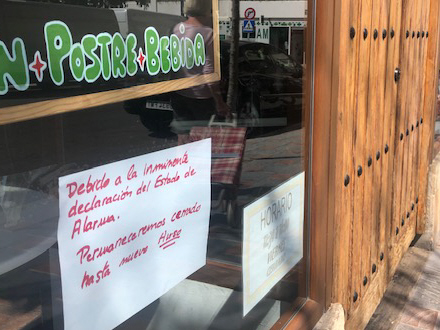 N + POSTRE + BEBIDA
Debido a la inminente
declaración del Estado de
Alarma.
Permaneceremos cerrado
hasta nuevo Aviso
HORARIO
AM